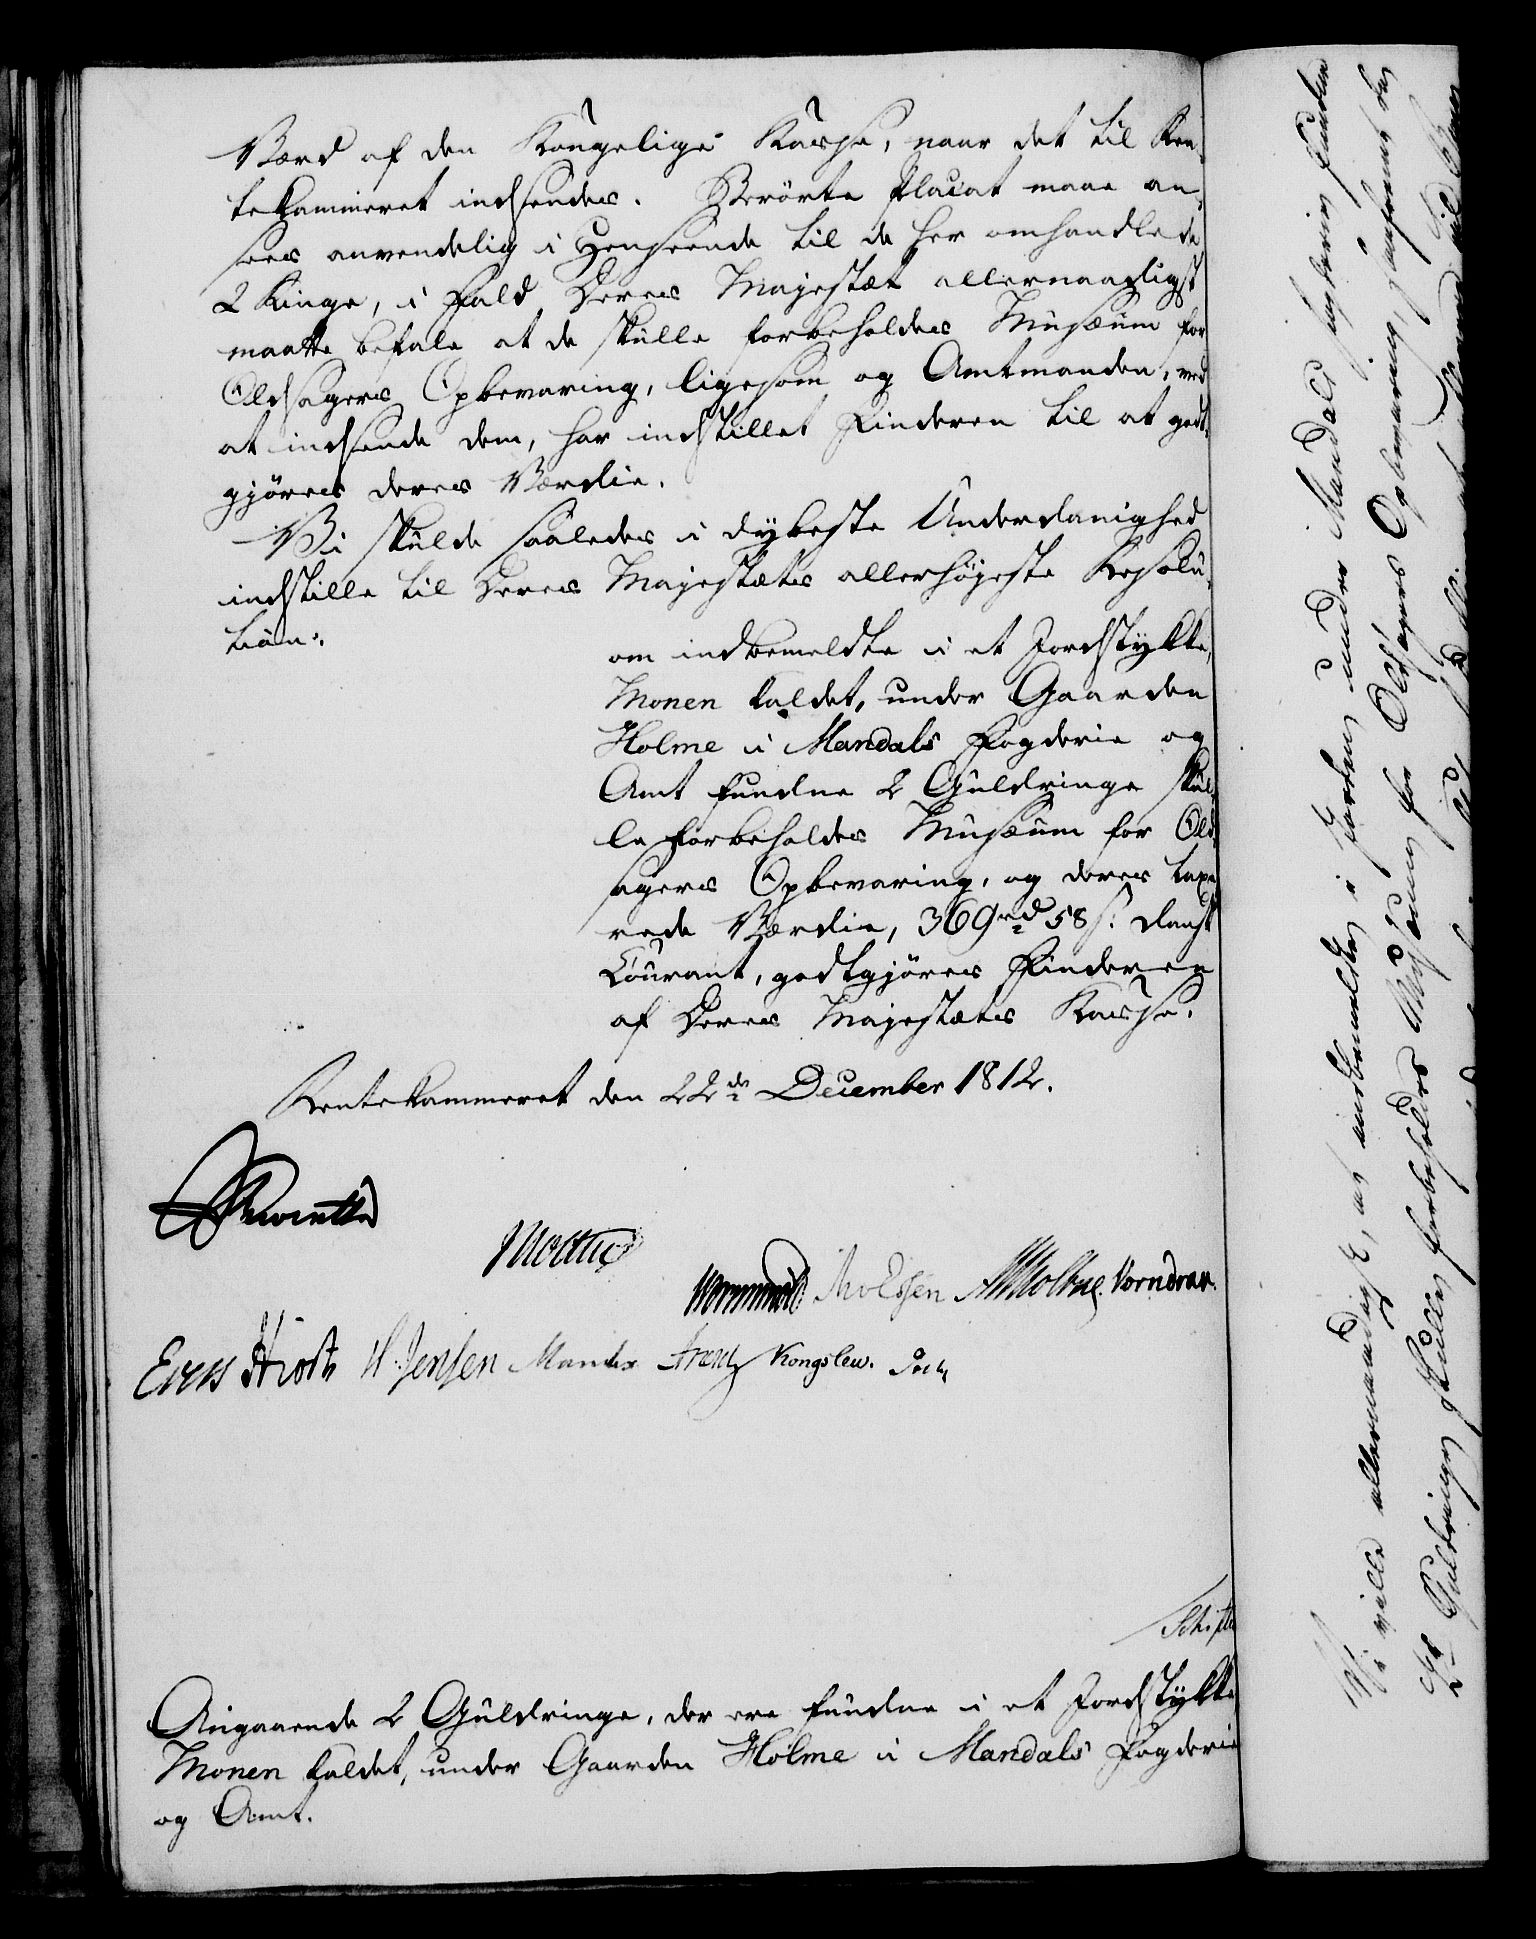 Værd af den Kongelige Kasse, naar det til Ren-
tekammeret indsendes. Berörte Placat maae an-
sees anvendelig i Henseende til de her omhandlede
2 Ringe, i Fald Deres Majestæt allernaadigst
maatte befale at de skulle forbeholdes Musæum for
Oldsagers Opbevaring, ligesom og Amtmanden, ved
at indsende dem, har indstillet Finderen til at godt-
gjöres deres Værdie.
Vi skulde saaledes i dybeste Underdanighed
indstille til Deres Majestæts allerhöjeste Resolu-
tion:
om indbemeldte i et Jordstykke,
Monen kaldet, under Gaarden
Holme i Mandals Fogderie og
Amt fundne 2 Guldringe skul-
le forbeholdes Musæum for Old-
sagers Opbevaring, og deres taxe-
rede Værdie, 369 rd 58 s. dansk
Courant, godtgjöres Finderen
af Deres Majestæts Kasse.
Rentekammeret den 22de December 1812.
Wormskiold Knoldsen Vorndran.
Hiorth H. Jensen Frentz Kongslew.
Schifter
Angaaende 2 Guldringe, der ere fundne i et Jordstykke
Monen kaldet, under Gaarden Holme i Mandals Fogderie
og Amt.
Vi ville allernaadigst, at indbemeldte i Jorden under Mandals Fogderie fundne
2de Guldringe skulle forbeholdes Musæum for Oldsagers Opbevaring,